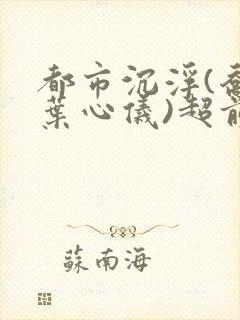 都市沉浮(喬
葉心儀)超前
蘇南海